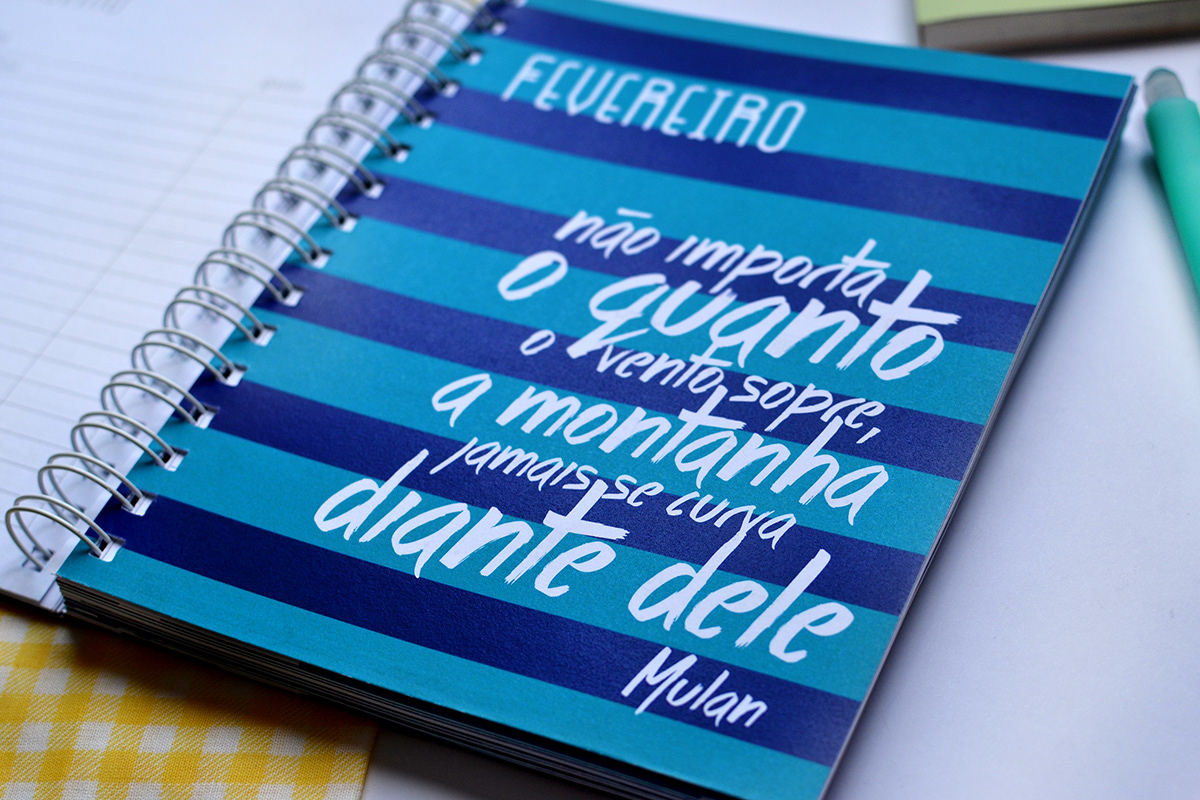 FEVEREIRO
não importa
o quanto
o vento sopre,
a montanha
jamais se curva
diante dele
Mulan